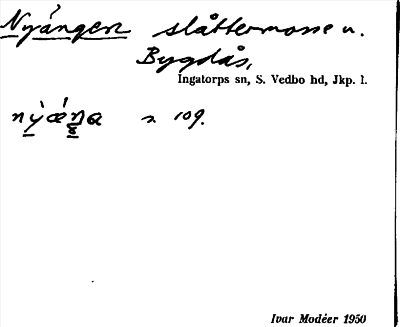 Nyängen slåttermosse u.
Bygdås,
Ingatorps sn, S. Vedbo hd, Jkp. l.
s. 109.
Ivar Modéer 1950